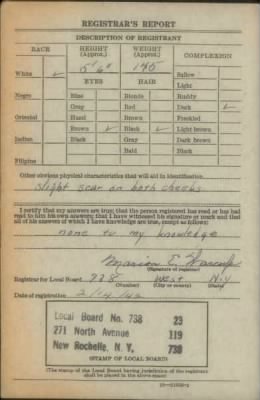 REGISTRAR'S REPORT
DESCRIPTION OF REGISTRANT
RACE
HEIGHT
(Approx.)
WEIGHT
(Approx.)
COMPLEXION
White ✓
5' 6"
145
Sallow
EYES
HAIR
Light
Negro
Blue
Blonde
Ruddy
Gray
Red
Dark ✓
Oriental
Hazel
Brown
Freckled
Brown ✓
Black ✓
Light brown
Indian
Black
Gray
Dark brown
Bald
Black
Filipino
Other obvious physical characteristics that will aid in identification
Slight scar on both cheeks
I certify that my answers are true; that the person registered has read or has had
read to him his own answers; that I have witnessed his signature or mark and that
all of his answers of which I have knowledge are true, except as follows:
none to my knowledge
Marion E.
(Signature of registrar)
Registrar for Local Board 738 West N.Y
(Number) (City or county) (State)
Date of registration 2/14/42
Local Board No. 738 23
271 North Avenue 119
New Rochelle, N. Y. 738
(STAMP OF LOCAL BOARD)
(The stamp of the Local Board having jurisdiction of the registrant
shall be placed in the above space)